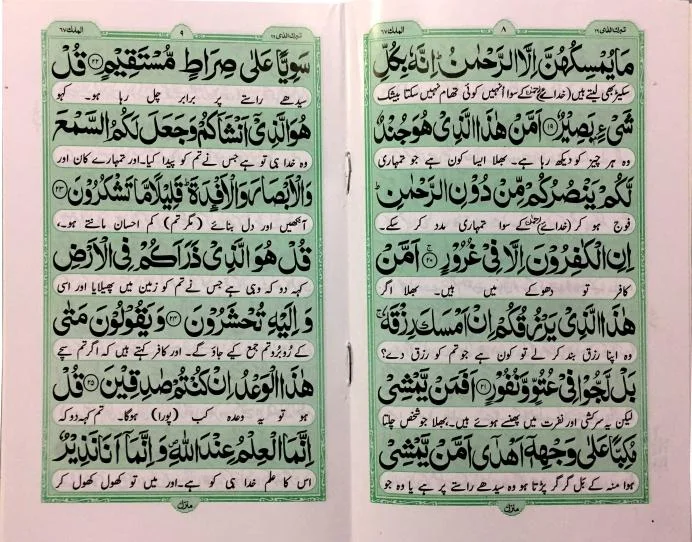 تبٰرك الذی ٢٩
٨
الملك ٦٧
مَا يُمْسِكُهُنَّ اِلَّا الرَّحْمٰنُ ؕ اِنَّهٗ بِكُلِّ
سکیڑ بھی لیتے ہیں (خدائے) رحمٰن کے سوا اُنہیں کوئی تھام نہیں سکتا بیشک
شَیْءٍۭ بَصِيْرٌ ﴿۱۹﴾ اَمَّنْ هٰذَا الَّذِیْ هُوَ جُنْدٌ
وہ ہر چیز کو دیکھ رہا ہے۔ بھلا ایسا کون ہے جو تمہاری
لَّكُمْ يَنْصُرُكُمْ مِّنْ دُوْنِ الرَّحْمٰنِ ؕ
فوج ہو کر (خدائے) رحمٰن کے سوا تمہاری مدد کر سکے۔
اِنِ الْكٰفِرُوْنَ اِلَّا فِیْ غُرُوْرٍ ﴿۲۰﴾ ۚ اَمَّنْ
کافر تو دھوکے میں ہیں۔ بھلا اگر
هٰذَا الَّذِیْ يَرْزُقُكُمْ اِنْ اَمْسَكَ رِزْقَهٗ ۚ
وہ اپنا رزق بند کر لے تو کون ہے جو تم کو رزق دے؟
بَلْ لَّجُّوْا فِیْ عُتُوٍّ وَّنُفُوْرٍ ﴿۲۱﴾ اَفَمَنْ يَّمْشِیْ
لیکن یہ سرکشی اور نفرت میں پھنسے ہوئے ہیں۔ بھلا جو شخص چلتا
مُكِبًّا عَلٰی وَجْهِهٖۤ اَهْدٰۤی اَمَّنْ يَّمْشِیْ
ہوا منہ کے بَل گر گر پڑتا ہو وہ سیدھے راستے پر ہے یا وہ جو
منزل
تبٰرك الذی ٢٩
٩
الملك ٦٧
سَوِيًّا عَلٰی صِرَاطٍ مُّسْتَقِيْمٍ ﴿۲۲﴾ قُلْ
سیدھے راستے پر برابر چل رہا ہو۔ کہو
هُوَ الَّذِیْۤ اَنْشَاَكُمْ وَجَعَلَ لَكُمُ السَّمْعَ
وہ خدا ہی تو ہے جس نے تم کو پیدا کیا۔ اور تمہارے کان اور
وَالْاَبْصَارَ وَالْاَفْـِٕدَةَ ؕ قَلِيْلًا مَّا تَشْكُرُوْنَ ﴿۲۳﴾
آنکھیں اور دل بنائے (مگر تم) کم احسان مانتے ہو۔
قُلْ هُوَ الَّذِیْ ذَرَاَكُمْ فِی الْاَرْضِ
کہہ دو کہ وہی ہے جس نے تم کو زمین میں پھیلایا اور اسی
وَاِلَيْهِ تُحْشَرُوْنَ ﴿۲۴﴾ وَيَقُوْلُوْنَ مَتٰی
کے رُوبرُو تم جمع کیے جاؤ گے۔ اور کافر کہتے ہیں کہ اگر تم سچے
هٰذَا الْوَعْدُ اِنْ كُنْتُمْ صٰدِقِيْنَ ﴿۲۵﴾ قُلْ
ہو تو یہ وعدہ کب (پورا) ہوگا۔ تم کہہ دو کہ
اِنَّمَا الْعِلْمُ عِنْدَ اللّٰهِ ۪ وَاِنَّمَاۤ اَنَا نَذِيْرٌ
اس کا علم خدا ہی کو ہے۔ اور میں تو کھول کھول کر
منزل